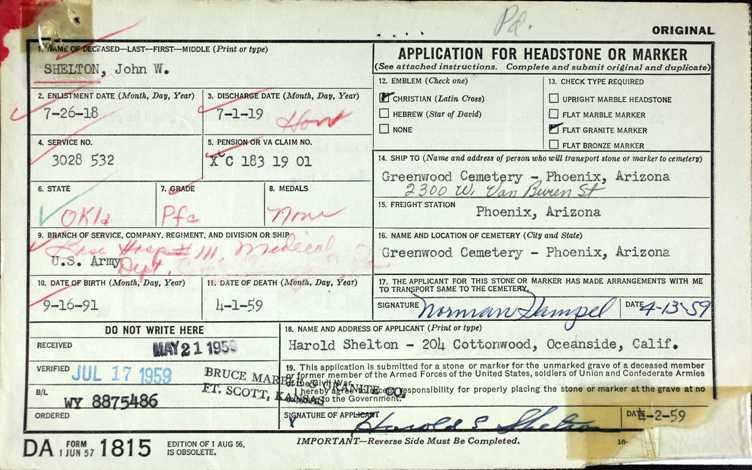 Pd.
ORIGINAL
1. NAME OF DECEASED—LAST—FIRST—MIDDLE (Print or type)
SHELTON, John W.
2. ENLISTMENT DATE (Month, Day, Year)
7-26-18
3. DISCHARGE DATE (Month, Day, Year)
7-1-19
Hon
4. SERVICE NO.
3028 532
5. PENSION OR VA CLAIM NO.
X C 183 19 01
6. STATE
Okla
7. GRADE
Pfc
8. MEDALS
None
9. BRANCH OF SERVICE, COMPANY, REGIMENT, AND DIVISION OR SHIP
Base Hosp # 111, Medical
U.S. Army
Dept.
10. DATE OF BIRTH (Month, Day, Year)
9-16-91
11. DATE OF DEATH (Month, Day, Year)
4-1-59
APPLICATION FOR HEADSTONE OR MARKER
(See attached instructions. Complete and submit original and duplicate)
12. EMBLEM (Check one)
CHRISTIAN (Latin Cross)
HEBREW (Star of David)
NONE
13. CHECK TYPE REQUIRED
UPRIGHT MARBLE HEADSTONE
FLAT MARBLE MARKER
FLAT GRANITE MARKER
FLAT BRONZE MARKER
14. SHIP TO (Name and address of person who will transport stone or marker to cemetery)
Greenwood Cemetery - Phoenix, Arizona
2300 W. Van Buren St
15. FREIGHT STATION
Phoenix, Arizona
16. NAME AND LOCATION OF CEMETERY (City and State)
Greenwood Cemetery - Phoenix, Arizona
17. THE APPLICANT FOR THIS STONE OR MARKER HAS MADE ARRANGEMENTS WITH ME
TO TRANSPORT SAME TO THE CEMETERY
SIGNATURE Norman Hampel DATE 4-13-59
DO NOT WRITE HERE
RECEIVED MAY 21 1959
VERIFIED JUL 17 1959
B/L WY 8875486
ORDERED
BRUCE MARBLE & GRANITE CO.
FT. SCOTT, KANSAS
18. NAME AND ADDRESS OF APPLICANT (Print or type)
Harold Shelton - 204 Cottonwood, Oceanside, Calif.
19. This application is submitted for a stone or marker for the unmarked grave of a deceased member
or former member of the Armed Forces of the United States, soldiers of Union and Confederate Armies
Civil War.
I hereby agree responsibility for properly placing the stone or marker at the grave at no
to the Government.
SIGNATURE OF APPLICANT Harold S Shelton
-2-59
DA FORM 1 JUN 57 1815
EDITION OF 1 AUG 56,
IS OBSOLETE.
IMPORTANT—Reverse Side Must Be Completed.
16-